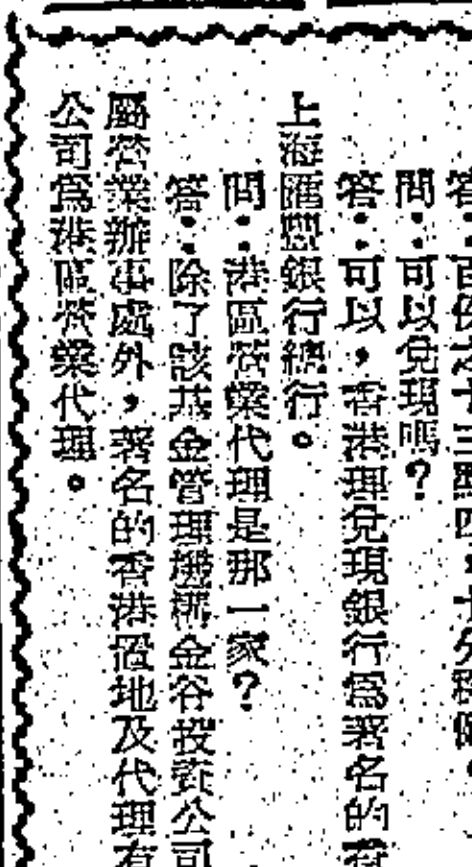 答：百份之十三點四，十分穩健。
問：可以兌現嗎？
答：可以，香港理兌現銀行爲著名的香
上海匯豐銀行總行。
問：港區營業代理是那一家？
答：除了該基金管理機構金谷投資公司
屬營業辦事處外，著名的香港置地及代理有
公司爲港區營業代理。